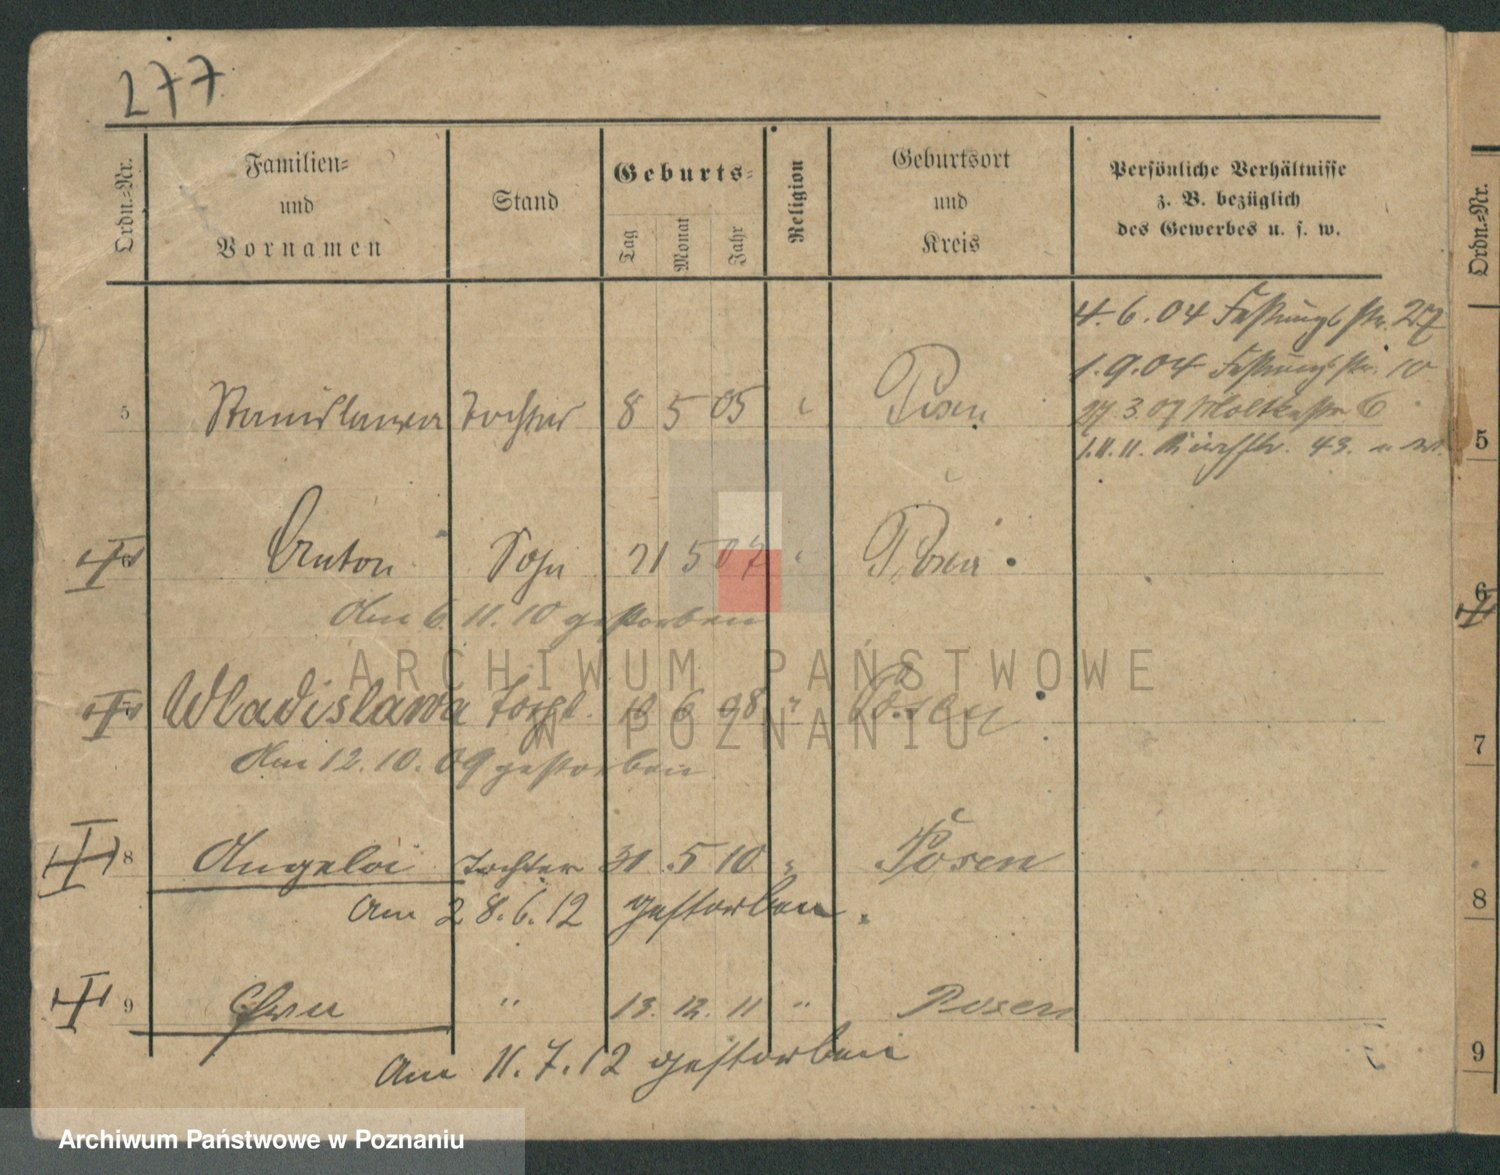 277
Ordn.-Nr.
Familien-
und
Vornamen
Stand
Geburts-
Tag
Monat
Jahr
Religion
Geburtsort
und
Kreis
Persönliche Verhältnisse
z. B. bezüglich
des Gewerbes u. s. w.
Ordn.-Nr.
4.6.04 Festungsstr. 27
1.9.04 Festungsstr. 10
27.3.07 Moltkestr 6
1.11.11. 43.
5 Stanislawa Tochter 8 5 05 Posen
5
6 Anton Sohn 21 5 07 Posen
6
Am 6.11.10 gestorben
ARCHIWUM PAŃSTWOWE
Wladislawa Tocht. 6 98 " Posen
W POZNANIU
7
Am 12.10.09 gestorben
8 Angela Tochter 31 5 10 " Posen
Am 28.6.12 gestorben.
8
9 " 13. 12. 11 " Posen
Am 11.7.12 gestorben
9
Archiwum Państwowe w Poznaniu